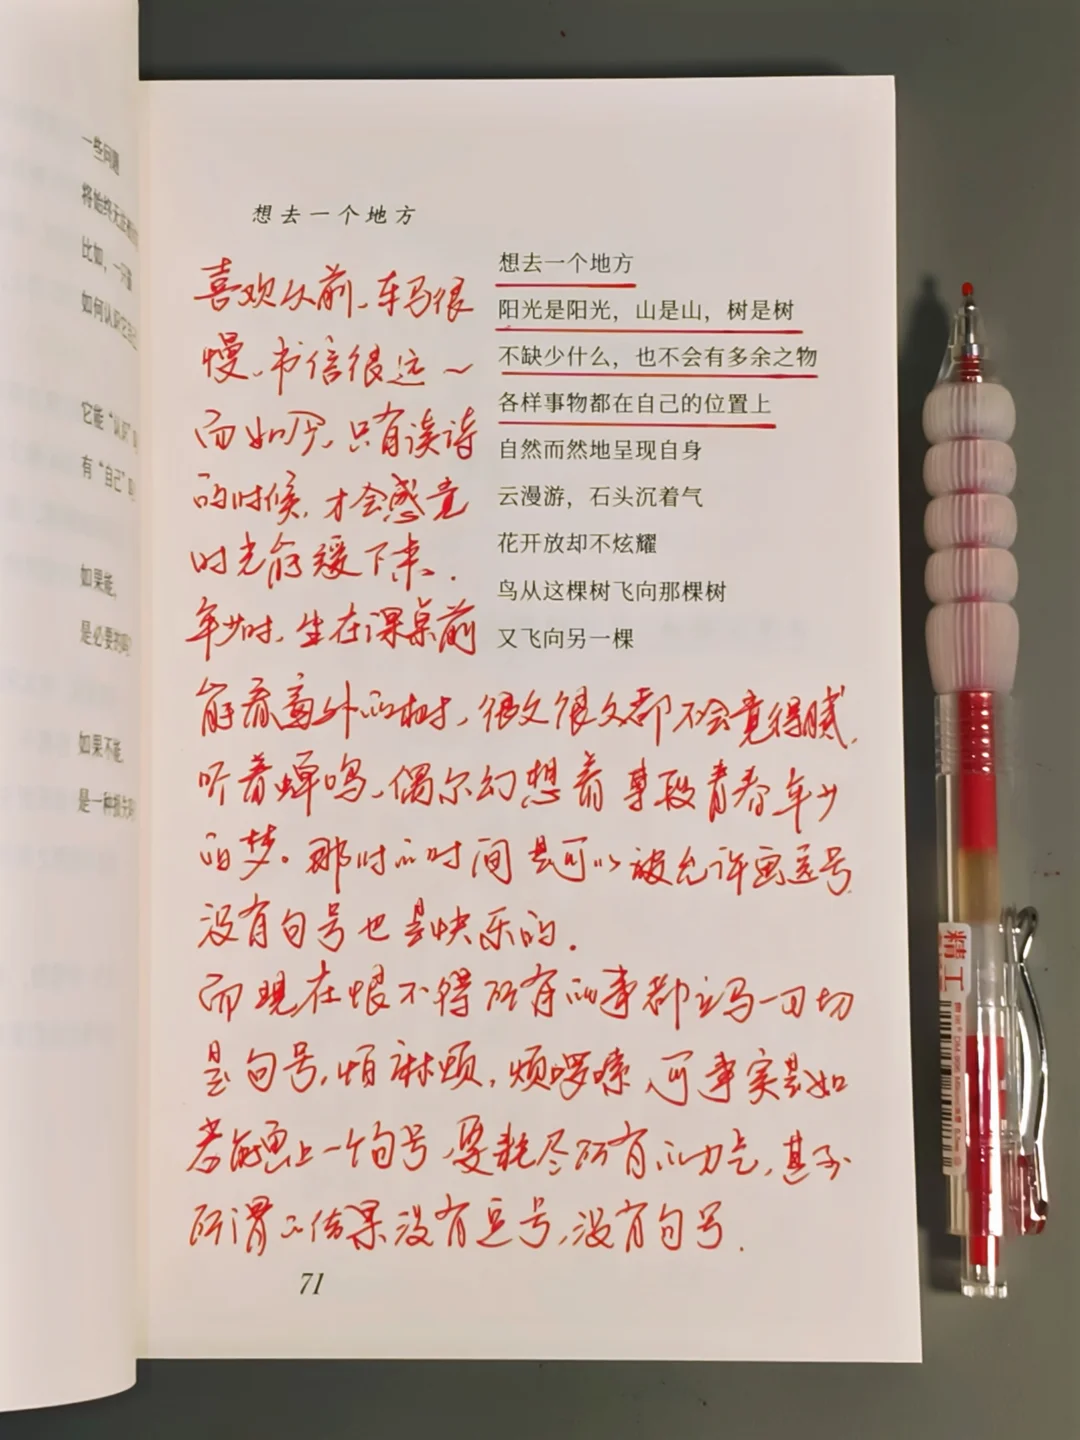 一些问题
将始终无
比如，一只
如何认识它
它能“认识”
有“自己”
如果能，
是必要的吗
如果不能，
是一种损失
想去一个地方
想去一个地方
阳光是阳光，山是山，树是树
不缺少什么，也不会有多余之物
各样事物都在自己的位置上
自然而然地呈现自身
云漫游，石头沉着气
花开放却不炫耀
鸟从这棵树飞向那棵树
又飞向另一棵
喜欢从前、车马很
慢、书信很远~
而如今，只有读诗
的时候，才会感觉
时光能缓下来.
年少时，坐在课桌前
能看窗外的树，很久很久都不会觉得腻，
听着蝉鸣、偶尔幻想着某段青春年少
的梦。那时的时间是可以被允许画逗号
没有句号也是快乐的.
而现在恨不得所有的事都立马一刀切
是句号，怕麻烦，烦啰嗦、可事实是如
若能画上一个句号、要耗尽所有的力气，甚至
所谓的结果没有逗号，没有句号.
71
精工